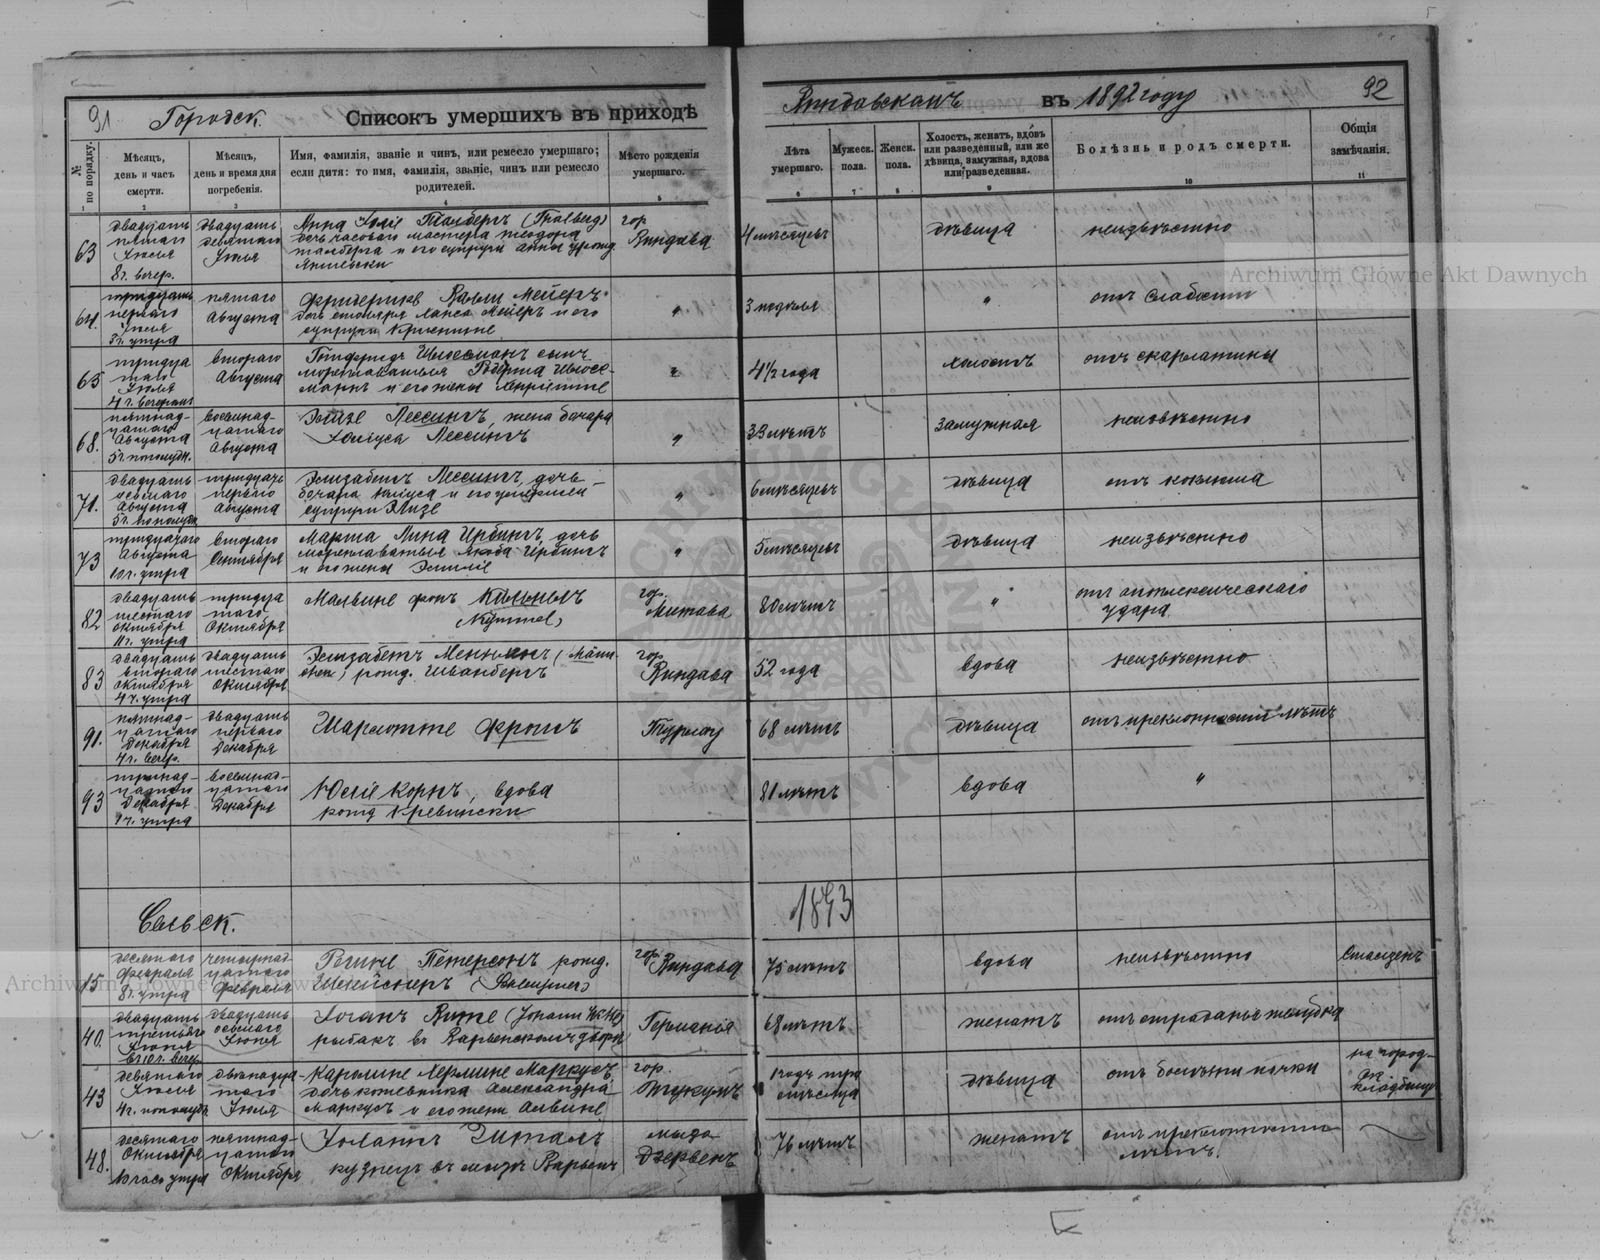 91 Городск. Списокъ умершихъ въ приходѣ
Виндавскомъ въ 1892 году 92
№ по порядку.
Мѣсяцъ, день и часъ смерти.
Мѣсяцъ, день и время дня погребенія.
Имя, фамилія, званіе и чинъ, или ремесло умершаго; если дитя: то имя, фамилія, званіе, чинъ или ремесло родителей.
Мѣсто рожденія умершаго.
Лѣта умершаго.
Мужеск. пола.
Женск. пола.
Холостъ, женатъ, вдовъ или разведенный, или же дѣвица, замужная, вдова или разведенная.
Болѣзнь и родъ смерти.
Общія замѣчанія.
1 2 3 4 5 6 7 8 9 10 11
63
двадцать пятаго Іюля 8 ч. вечер.
двадцать девятаго Іюля
Анна Юліе Талбергъ (Thalberg)
дочь часоваго мастера Теодора
Талберга и его супруги Анны урожд.
гор. Виндава
4 мѣсяцевъ
дѣвица
неизвѣстно
64.
тридцать перваго Іюля 3 ч. утра
пятаго Августа
Фридерике Валли Мейеръ
дочь столяра Ханса Мейеръ и его
супруги Кристине
"
3 недѣли
"
отъ слабости
65
тридцатаго Іюля 4 ч. вечеромъ
втораго Августа
Готфридъ Шлоссманъ сынъ
мореплавателя Роберта Шлосс-
манъ и его жены Генріетте
"
4½ года
холостъ
отъ скарлатины
68.
пятнад-цатаго Августа 5 ч. пополудн.
восемнад-цатаго Августа
Элизе Лессингъ, жена бочара
Юліуса Лессингъ
"
33 лѣтъ
замужная
неизвѣстно
71.
двадцать осьмаго Августа 5 ч. пополудн.
тридцать перваго Августа
Элизабетъ Лессингъ, дочь
бочара Юліуса и его умершей
супруги Элизе
"
6 мѣсяцевъ
дѣвица
отъ коклюша
73
тридцатаго Августа 10 ч. утра
втораго Сентября
Марта Лина Ирбингъ, дочь
мореплавателя Якоба Ирбингъ
и его жены Эмиліе
"
5 мѣсяцевъ
дѣвица
неизвѣстно
82
двадцать шестаго Октября 11 ч. утра
тридцатаго Октября
Мальвине фонъ Кюммель
(Kymmel)
гор. Митава
80 лѣтъ
"
отъ апоплексическаго удара
83
двадцать втораго Октября 4 ч. утра
двадцать шестаго Октября
Элизабетъ Меньхенъ (Män-
chen) рожд. Шванбергъ
гор. Виндава
52 года
вдова
неизвѣстно
91.
пятнад-цатаго Декабря 4 ч. вечер.
двадцать перваго Декабря
Шарлотте Фромъ
Турлау
68 лѣтъ
дѣвица
отъ преклонности лѣтъ
93
тринад-цатаго Декабря 9 ч. утра
восемнад-цатаго Декабря
Юліе Корнъ, вдова
рожд. Кревински
81 лѣтъ
вдова
"
Сельск.
1893
15
десятаго Февраля 8 ч. утра
четырнад-цатаго Февраля
Регине Петерсонъ рожд.
Шлейснеръ (Schleusner)
гор. Виндава
75 лѣтъ
вдова
неизвѣстно
40.
двадцать третьяго Іюня въ 10 ч. вечер.
двадцать осьмаго Іюня
Іоганъ Витте (Johann Witte)
рыбакъ въ Варвенскомъ дворѣ
Германія
68 лѣтъ
женатъ
отъ страданья желудка
43
девятаго Іюля 4 ч. пополудн.
двѣнадцатаго Іюля
Каролине Гермине Маркусъ,
дочь кожевника Александра
Маркусъ и его жены Алвине
гор. Туккумъ
1 годъ три мѣсяца
дѣвица
отъ болѣзни почки
на город-ск. кладбищѣ
48.
десятаго Октября 10 часо утра
пятнад-цатаго Октября
кузнецъ въ мызѣ Варвенъ
мыза Дзервенъ
76 лѣтъ
женатъ
отъ преклонности лѣтъ.
Archiwum Główne Akt Dawnych
Archiwum Główne Akt Dawnych